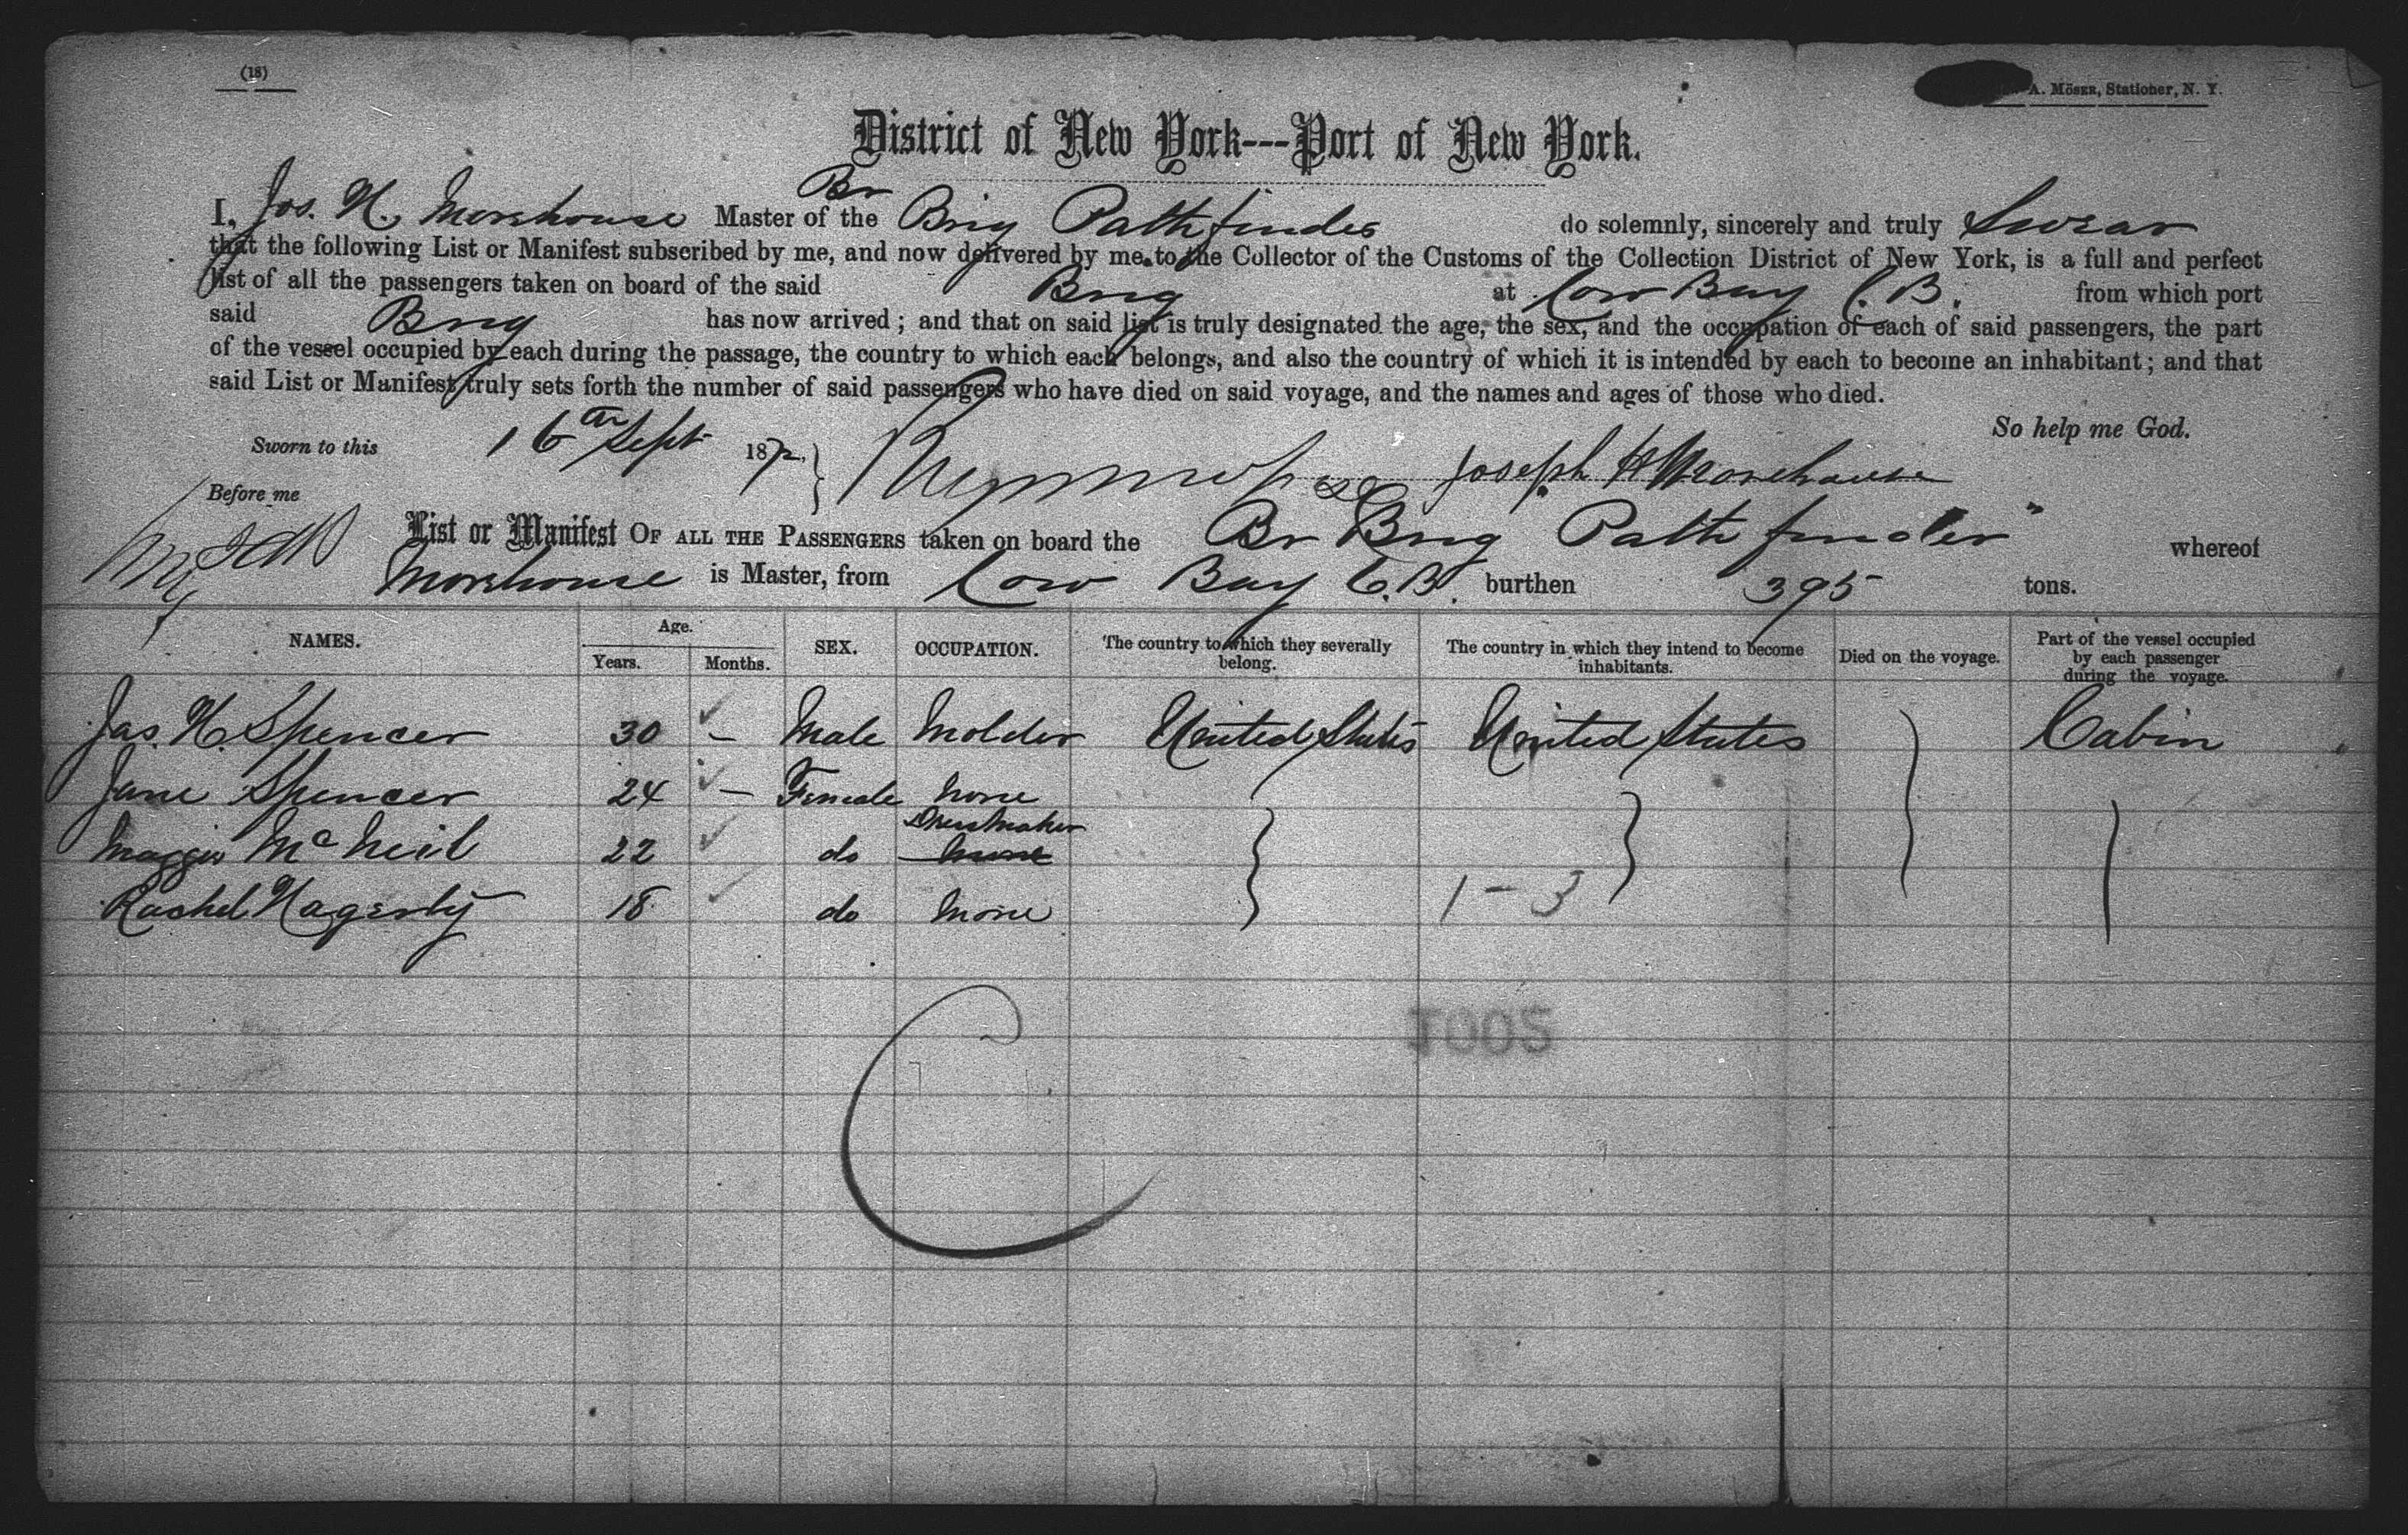 (18)
A. Möser, Stationer, N. Y.
District of New York---Port of New York.
Br
I, Jos. H. Morehouse Master of the Brig Pathfinder do solemnly, sincerely and truly Swear
that the following List or Manifest subscribed by me, and now delivered by me to the Collector of the Customs of the Collection District of New York, is a full and perfect
list of all the passengers taken on board of the said Brig at Cow Bay C.B. from which port
said Brig has now arrived; and that on said list is truly designated the age, the sex, and the occupation of each of said passengers, the part
of the vessel occupied by each during the passage, the country to which each belongs, and also the country of which it is intended by each to become an inhabitant; and that
said List or Manifest truly sets forth the number of said passengers who have died on said voyage, and the names and ages of those who died.
So help me God.
Sworn to this 16th Sept 1872 Joseph H Morehouse
Before me
List or Manifest OF ALL THE PASSENGERS taken on board the Br Brig Pathfinder" whereof
Morehouse is Master, from Cow Bay C.B. burthen 395 tons.
NAMES. Age. Years. Months. SEX. OCCUPATION. The country to which they severally belong. The country in which they intend to become inhabitants. Died on the voyage. Part of the vessel occupied by each passenger during the voyage.
Jas. H. Spencer 30 – Male Molder United States United States Cabin
Jane Spencer 24 – Female None
Maggie McNeil 22 do Dressmaker None
Rachel Hagerty 18 do None
1-3
C